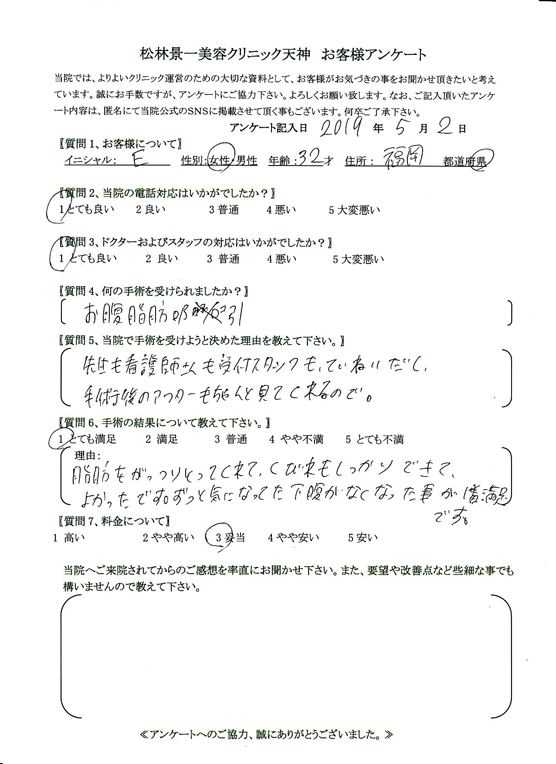 松林景一美容クリニック天神　お客様アンケート
当院では、よりよいクリニック運営のための大切な資料として、お客様がお気づきの事をお聞かせ頂きたいと考え
ています。誠にお手数ですが、アンケートにご協力下さい。よろしくお願い致します。なお、ご記入頂いたアンケ
ート内容は、匿名にて当院公式のSNSに掲載させて頂く事もございます。何卒ご了承下さい。
アンケート記入日 2019 年 5 月 2 日
〖質問1、お客様について〗
イニシャル： E 性別：女性・男性 年齢：32才 住所： 福岡 都道府県
〖質問2、当院の電話対応はいかがでしたか？〗
1 とても良い 2 良い 3 普通 4 悪い 5 大変悪い
〖質問3、ドクターおよびスタッフの対応はいかがでしたか？〗
1 とても良い 2 良い 3 普通 4 悪い 5 大変悪い
〖質問4、何の手術を受けられましたか？〗
お腹脂肪吸引
〖質問5、当院で手術を受けようと決めた理由を教えて下さい。〗
先生も看護師さんも受付スタッフも、ていねいだし、
手術後のアフターもちゃんと見てくれるので。
〖質問6、手術の結果について教えて下さい。〗
1 とても満足 2 満足 3 普通 4 やや不満 5 とても不満
理由：
脂肪をがっつりとってくれて、くびれもしっかりできて、
よかったです。ずっと気になってた下腹がなくなった事が1番満足
です。
〖質問7、料金について〗
1 高い 2 やや高い 3 妥当 4 やや安い 5 安い
当院へご来院されてからのご感想を率直にお聞かせ下さい。また、要望や改善点など些細な事でも
構いませんので教えて下さい。
≪アンケートへのご協力、誠にありがとうございました。≫